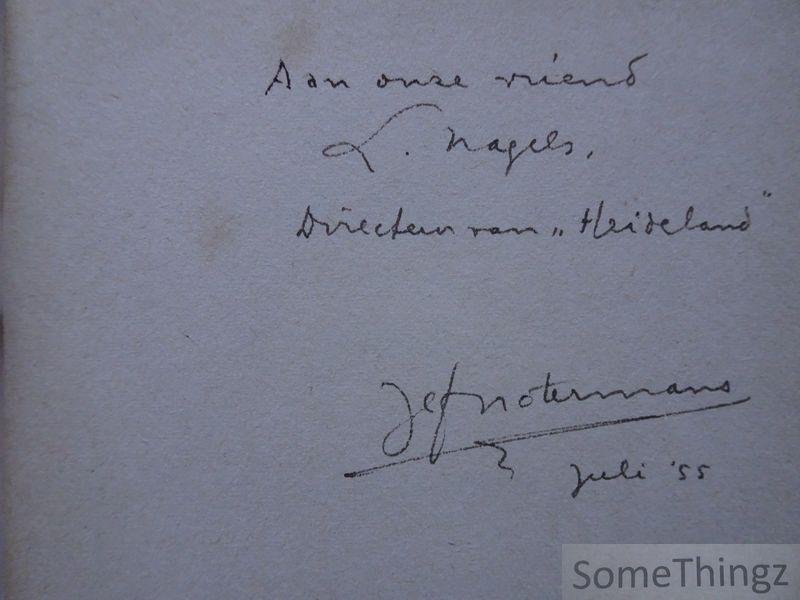 Aan onze vriend
L. Nagels,
Directeur van „Heideland"
Jef Notermans
juli '55
SomeThingz